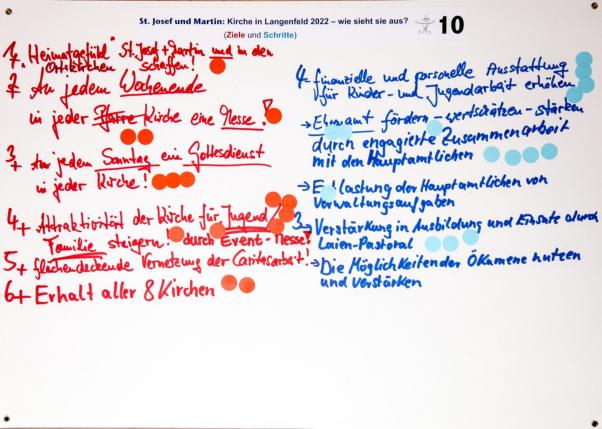 St. Josef und Martin: Kirche in Langenfeld 2022 – wie sieht sie aus?
(Ziele und Schritte)
10
1. "Heimatgefühl" St. Josef + Martin und in den
Ortskirchen schaffen!
2. An jedem Wochenende
in jeder Pfarre Kirche eine Messe!
3+ An jedem Sonntag ein Gottesdienst
in jeder Kirche!
4+ Attraktivität der Kirche für Jugend/
Familie steigern! durch Event-Messe?
5+ flächendeckende Vernetzung der Caritasarbeit!
6+ Erhalt aller 8 Kirchen
4. finanzielle und personelle Ausstattung
für Kinder- und Jugendarbeit erhöhen
→ Ehrenamt fördern - wertschätzen - stärken
durch engagierte Zusammenarbeit
mit den Hauptamtlichen
→ Entlastung der Hauptamtlichen von
Verwaltungsaufgaben
3. Verstärkung in Ausbildung und Einsatz durch
Laien-Pastoral
→ Die Möglichkeiten der Ökumene nutzen
und verstärken